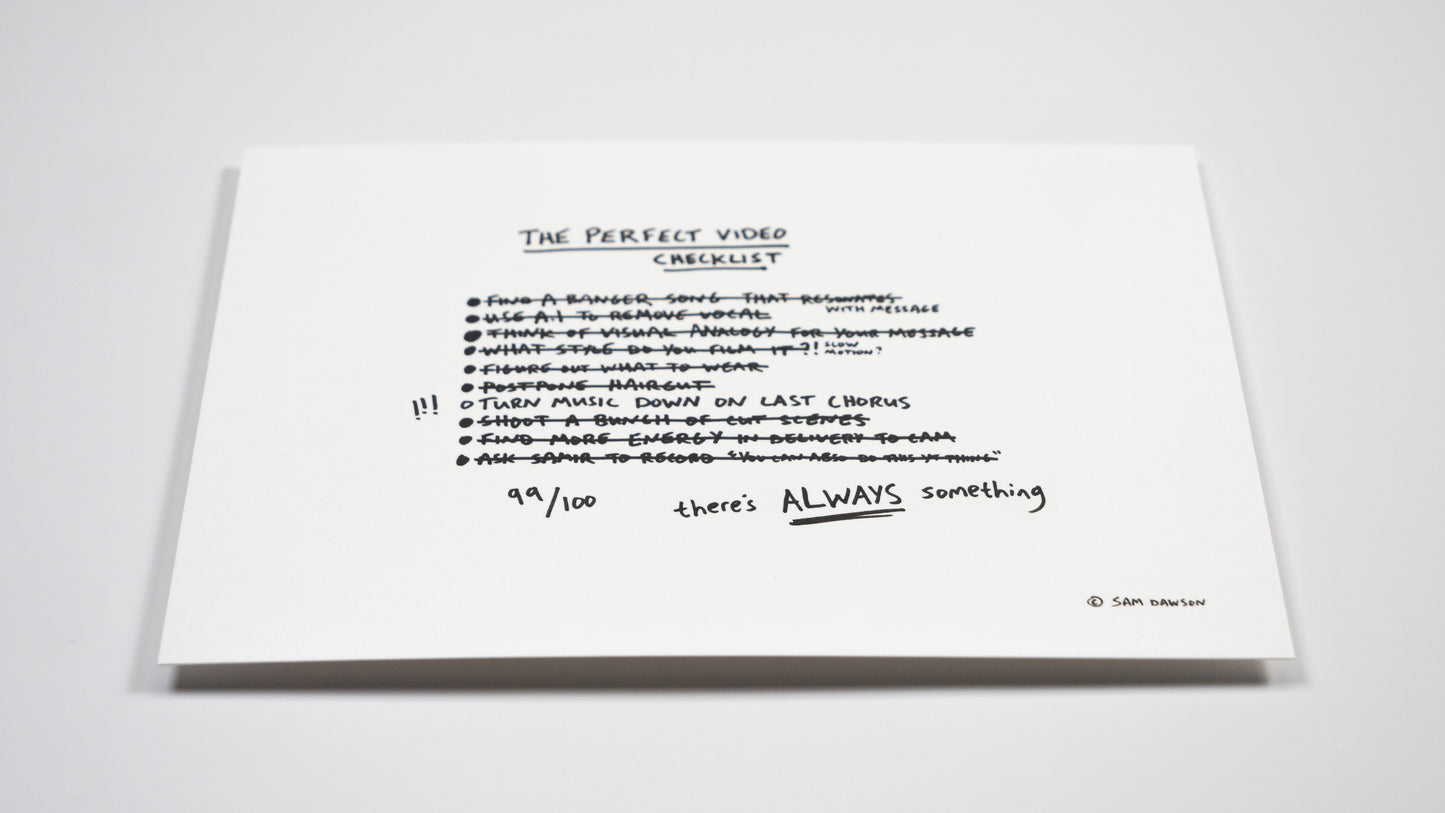 THE PERFECT VIDEO
CHECKLIST
● FIND A BANGER SONG THAT RESONATES
WITH MESSAGE
● USE A.I TO REMOVE VOCAL
● THINK OF VISUAL ANALOGY FOR YOUR MESSAGE
● WHAT STYLE DO YOU FILM IT?! SLOW
MOTION?
● FIGURE OUT WHAT TO WEAR
● POSTPONE HAIRCUT
!!! ○ TURN MUSIC DOWN ON LAST CHORUS
● SHOOT A BUNCH OF CUT SCENES
● FIND MORE ENERGY IN DELIVERY TO CAM
● ASK SAMIR TO RECORD "YOU CAN ALSO DO THIS YT THING"
99/100 there's ALWAYS something
© SAM DAWSON